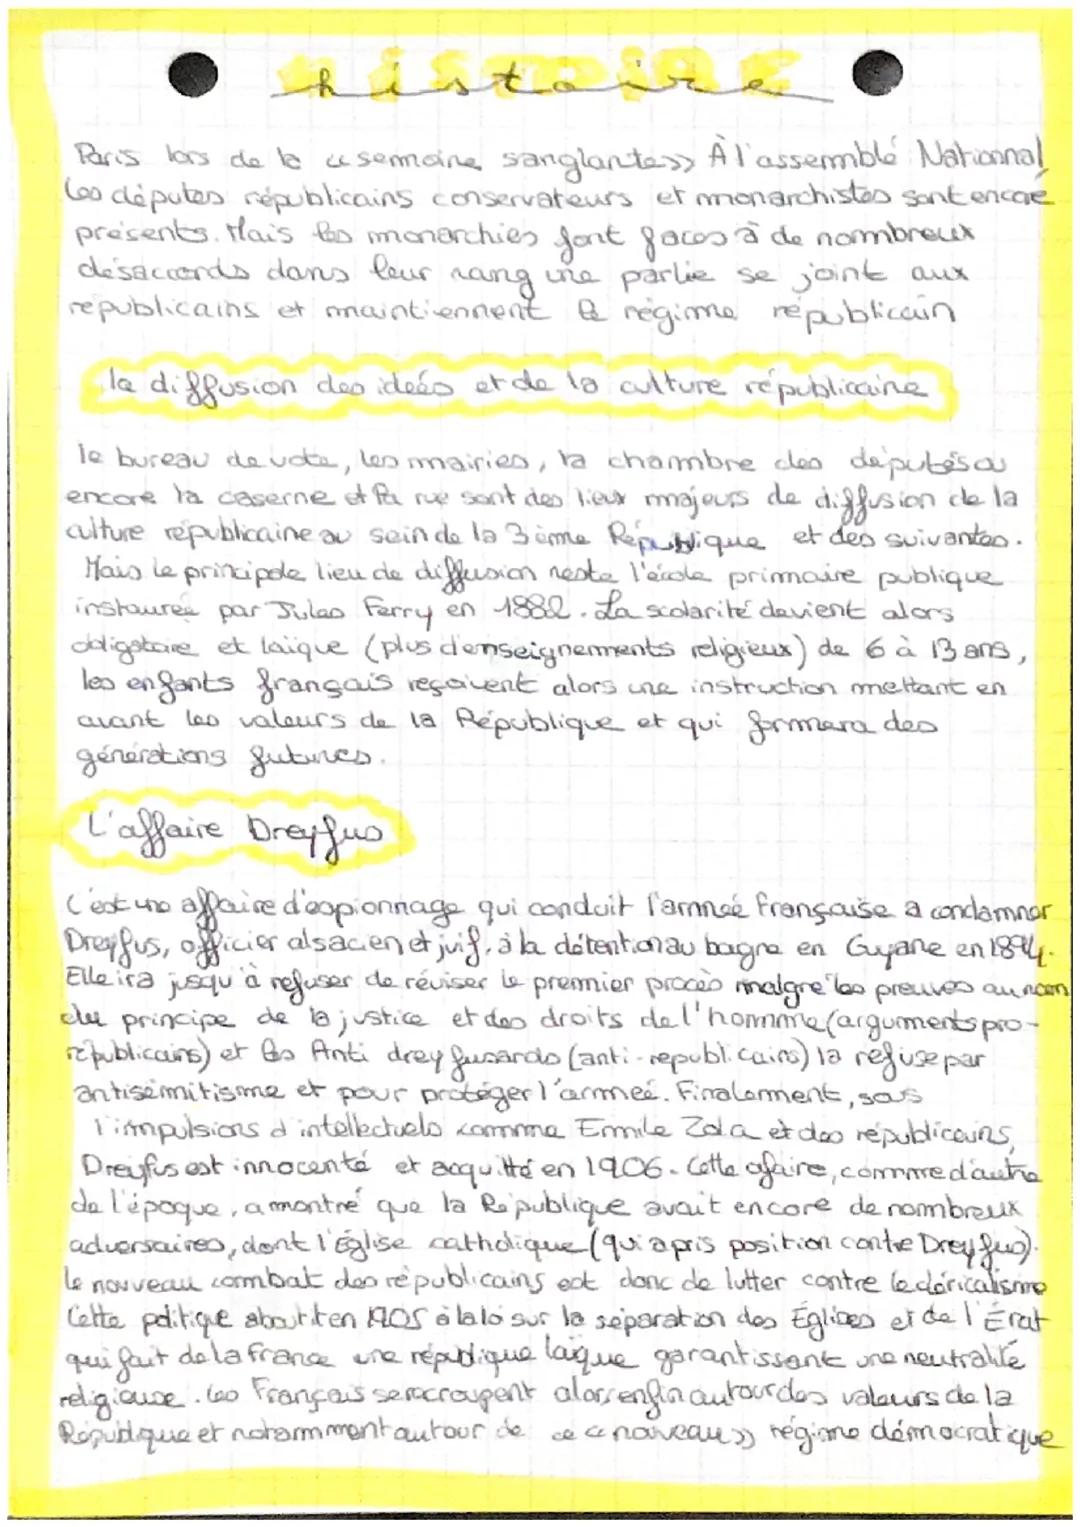 histoire
Paris lors de la « semaine sanglante » À l'assemblé National
les députes républicains conservateurs et monarchistes sont encore
présents. Mais les monarchies font faces à de nombreux
désaccords dans leur rang une partie se joint aux
républicains et maintiennent le régime républicain
la diffusion des ideés et de la culture républicaine
le bureau de vote, les mairies, la chambre des députés ou
encore la caserne et la rue sont des lieux majeurs de diffusion de la
culture républicaine au sein de la 3ième République et des suivantes.
Mais le principale lieu de diffusion reste l'école primaire publique
instaurée par Jules Ferry en 1882. La scolarité devient alors
obligatoire et laïque (plus d'enseignements religieux) de 6 à 13 ans,
les enfants français reçoivent alors une instruction mettant en
avant les valeurs de la République et qui formera des
générations futures.
L'affaire Dreyfus
C'est une affaire d'espionnage qui conduit l'armeé française a condamner
Dreyfus, officier alsacien et juif, à la détention au bagne en Guyane en 1894.
Elle ira jusqu'à refuser de réviser le premier procès malgré les preuves au nom
du principe de la justice et des droits de l'homme (arguments pro-
républicains) et les Anti dreyfusards (anti-republicains) la refuse par
antisémitisme et pour protéger l'armeé. Finalement, sous
l'impulsions d'intellectuels comme Emile Zola et des républicains,
Dreyfus est innocenté et acquitté en 1906. Cette afaire, comme d'autre
de l'époque, a montré que la République avait encore de nombreux
adversaires, dont l'Église catholique (qui a pris position contre Dreyfus).
Le nouveau combat des républicains est donc de lutter contre le cléricalisme
Cette politique aboutit en 1905 à la loi sur la séparation des Églises et de l'État
qui fait de la france une république laïque garantissant une neutralité
religieuse. Les Français se regroupent alors enfin autour des valeurs de la
République et notamment autour de ce « nouveau » régime démocratique